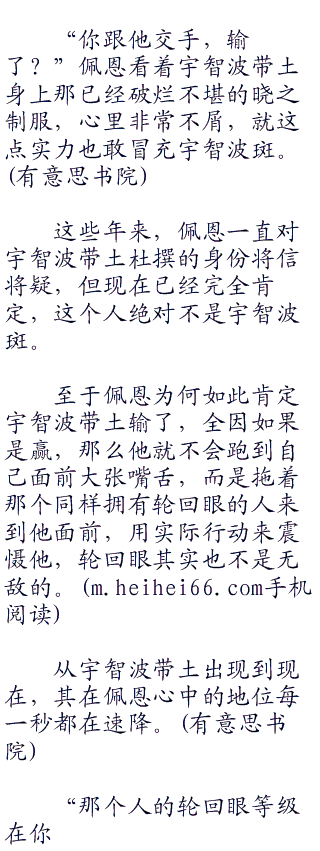 “你跟他交手，输
了？”佩恩看着宇智波带土
身上那已经破烂不堪的晓之
制服，心里非常不屑，就这
点实力也敢冒充宇智波斑。
(有意思书院)
这些年来，佩恩一直对
宇智波带土杜撰的身份将信
将疑，但现在已经完全肯
定，这个人绝对不是宇智波
斑。
至于佩恩为何如此肯定
宇智波带土输了，全因如果
是赢，那么他就不会跑到自
己面前大张嘴舌，而是拖着
那个同样拥有轮回眼的人来
到他面前，用实际行动来震
慑他，轮回眼其实也不是无
敌的。(m.heihei66.com手机
阅读)
从宇智波带土出现到现
在，其在佩恩心中的地位每
一秒都在速降。(有意思书
院)
“那个人的轮回眼等级
在你